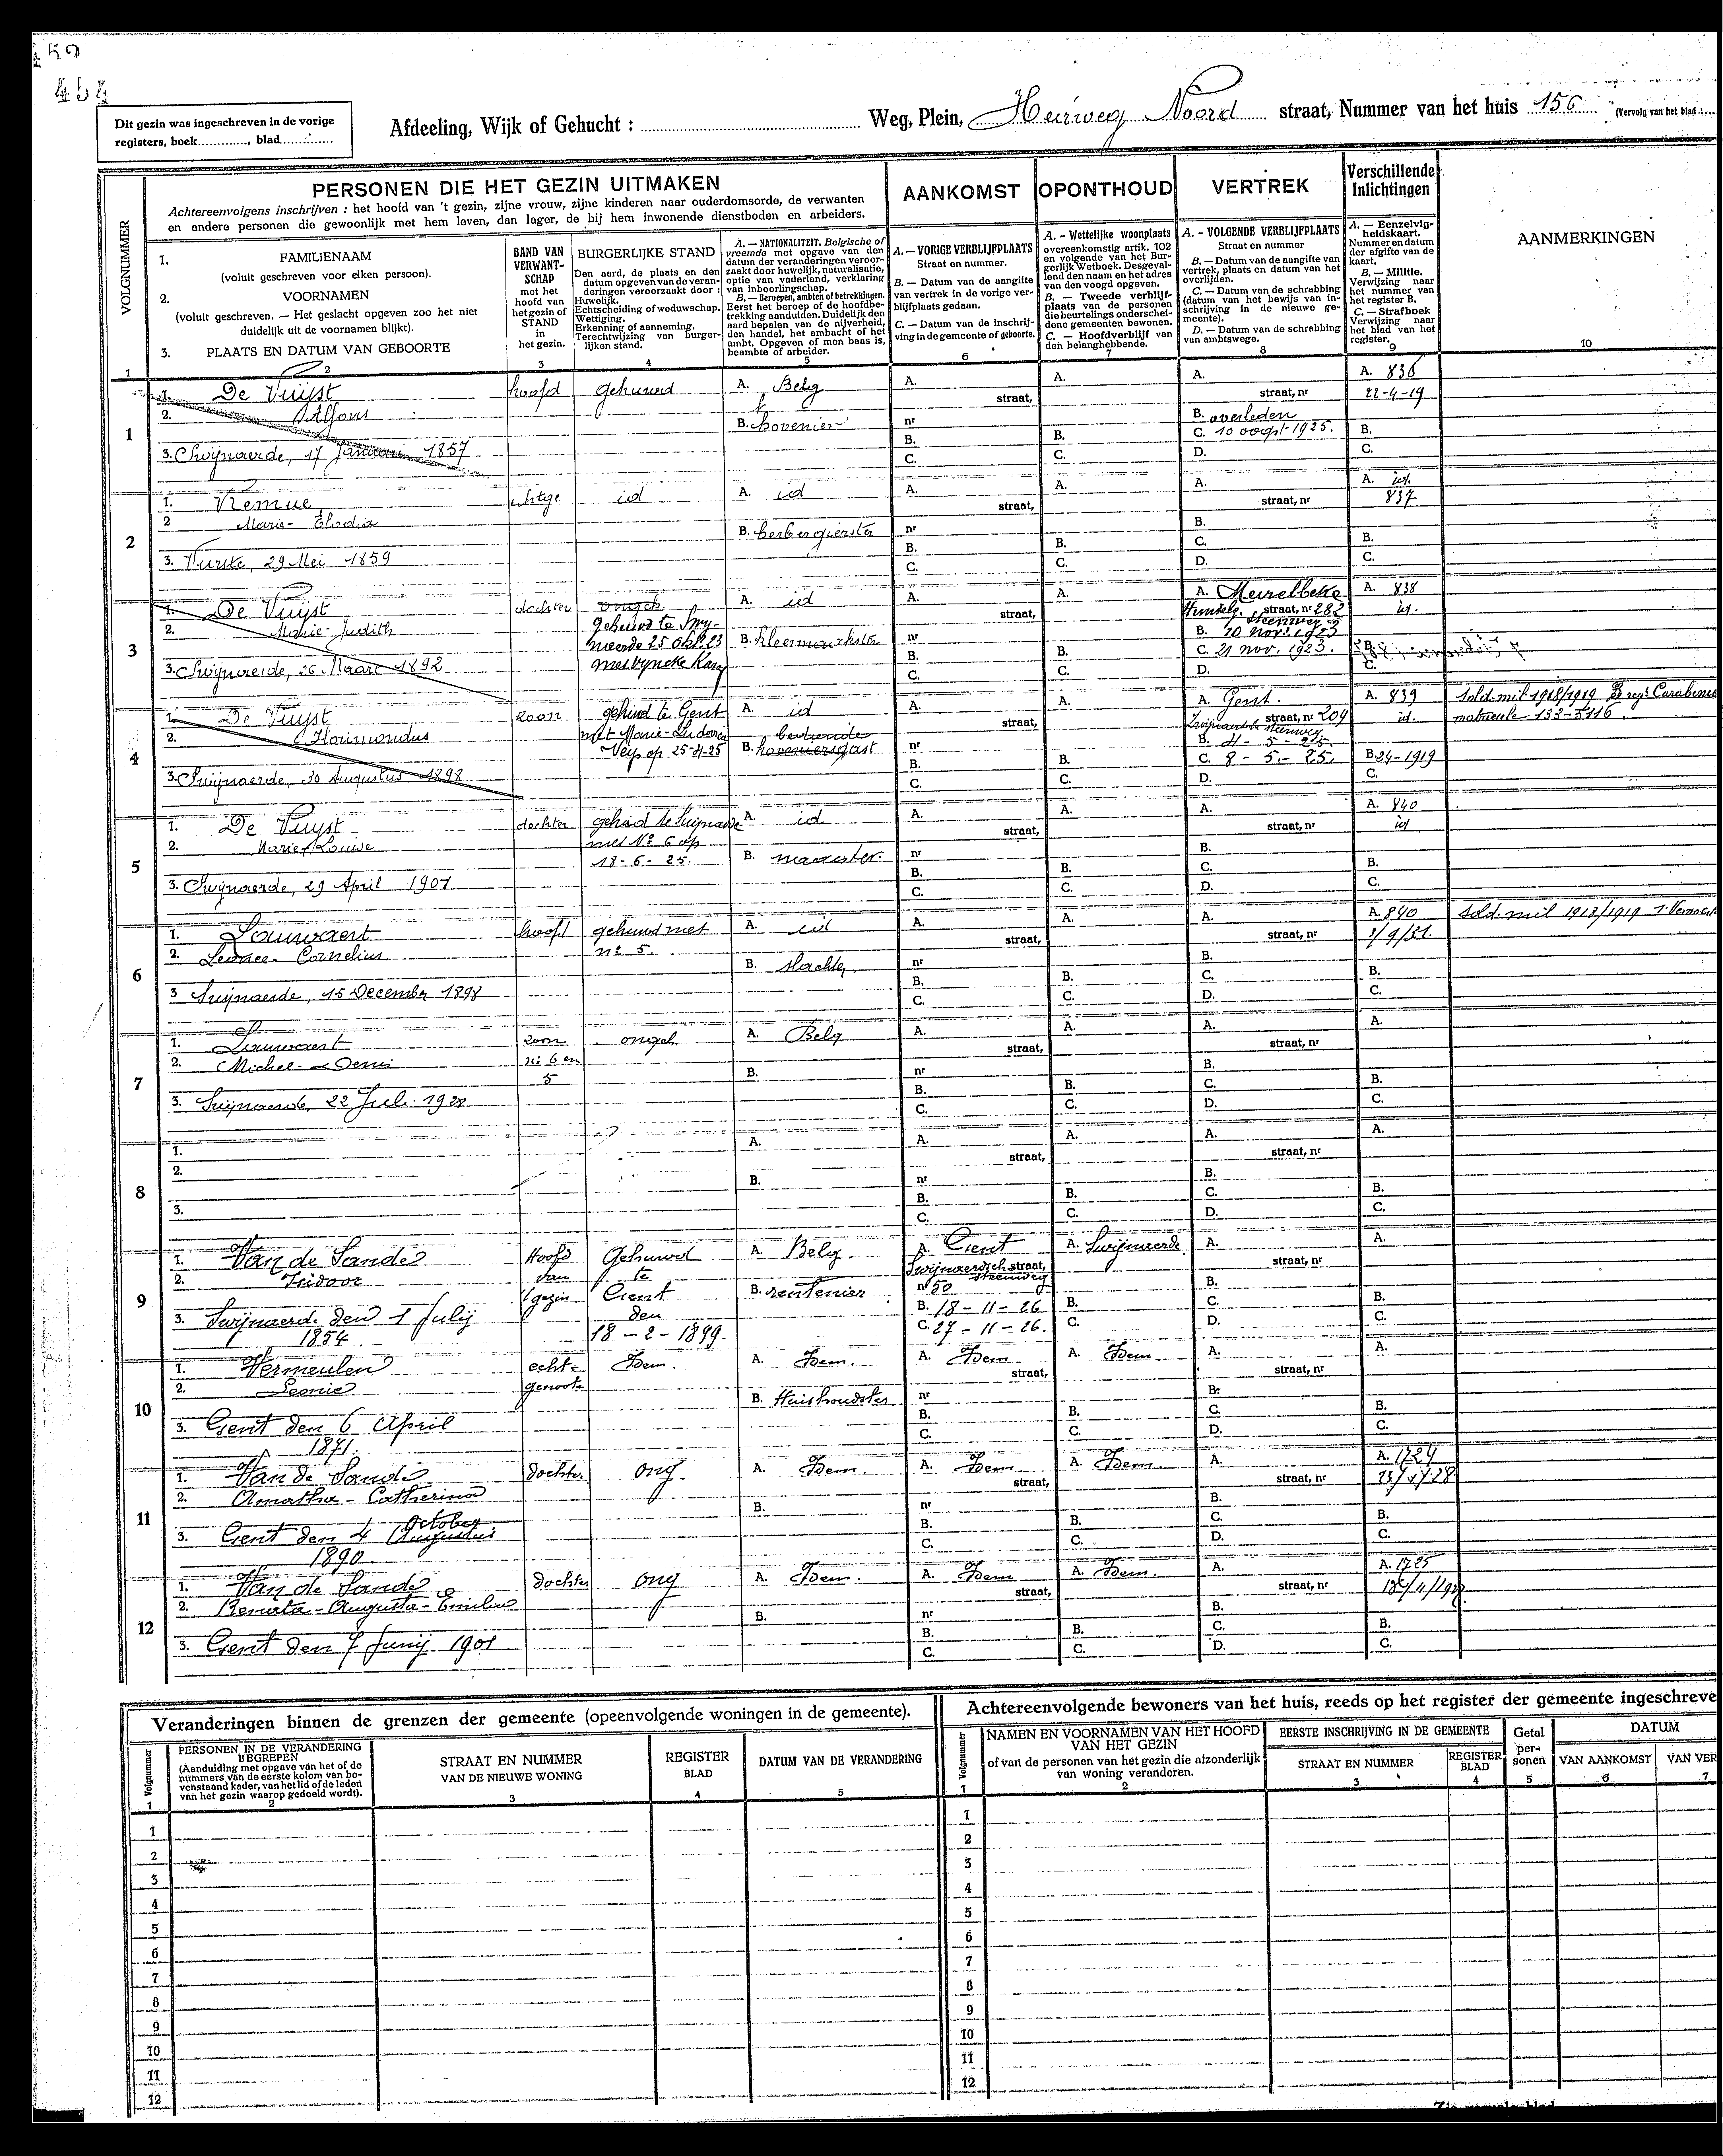 454
Dit gezin was ingeschreven in de vorige
registers, boek............., blad...............
Afdeeling, Wijk of Gehucht :
Weg, Plein, Heirweg Noord straat, Nummer van het huis 156 (Vervolg van het blad
VOLGNUMMER
PERSONEN DIE HET GEZIN UITMAKEN
Achtereenvolgens inschrijven : het hoofd van 't gezin, zijne vrouw, zijne kinderen naar ouderdomsorde, de verwanten
en andere personen die gewoonlijk met hem leven, dan lager, de bij hem inwonende dienstboden en arbeiders.
AANKOMST
OPONTHOUD
VERTREK
Verschillende
Inlichtingen
AANMERKINGEN
1. FAMILIENAAM
(voluit geschreven voor elken persoon).
2. VOORNAMEN
(voluit geschreven. — Het geslacht opgeven zoo het niet
duidelijk uit de voornamen blijkt).
3. PLAATS EN DATUM VAN GEBOORTE
BAND VAN
VERWANT-
SCHAP
met het
hoofd van
het gezin of
STAND
in
het gezin.
BURGERLIJKE STAND
Den aard, de plaats en den
datum opgeven van de veran-
deringen veroorzaakt door :
Huwelijk.
Echtscheiding of weduwschap.
Wettiging.
Erkenning of aanneming.
Terechtwijzing van burger-
lijken stand.
A. — NATIONALITEIT. Belgische of
vreemde met opgave van den
datum der veranderingen veroor-
zaakt door huwelijk, naturalisatie,
optie van vaderland, verklaring
van inboorlingschap.
B. — Beroepen, ambten of betrekkingen.
Eerst het beroep of de hoofdbe-
trekking aanduiden. Duidelijk den
aard bepalen van de nijverheid,
den handel, het ambacht of het
ambt. Opgeven of men baas is,
beambte of arbeider.
A. — VORIGE VERBLIJFPLAATS
Straat en nummer.
B. — Datum van de aangifte
van vertrek in de vorige ver-
blijfplaats gedaan.
C. — Datum van de inschrij-
ving in de gemeente of geboorte.
A. - Wettelijke woonplaats
overeenkomstig artik. 102
en volgende van het Bur-
gerlijk Wetboek. Desgeval-
lend den naam en het adres
van den voogd opgeven.
B. — Tweede verblijf-
plaats van de personen
die beurtelings onderschei-
dene gemeenten bewonen.
C. — Hoofdverblijf van
den belanghebbende.
A. - VOLGENDE VERBLIJFPLAATS
Straat en nummer
B. — Datum van de aangifte van
vertrek, plaats en datum van het
overlijden.
C. — Datum van de schrabbing
(datum van het bewijs van in-
schrijving in de nieuwe ge-
meente).
D. — Datum van de schrabbing
van ambtswege.
A. — Eenzelvig-
heidskaart.
Nummer en datum
der afgifte van de
kaart.
B. — Militie.
Verwijzing naar
het nummer van
het register B.
C. — Strafboek
Verwijzing naar
het blad van het
register.
1 2 3 4 5 6 7 8 9 10
1
1. De Vuijst hoofd gehuwd A. Belg A. straat, A. A. straat, nr A. 836
22-4-19
2. Alfons B. hovenier nr B. overleden
3. Swijnaerde, 17 Januari 1857 B. C. B. C. C. 10 oogst 1925. D. B. C.
2
1. Remue echtge id A. id A. straat, A. A. straat, nr A. id.
837
2 Marie-Elodia B. herbergierster nr B.
3. Vurste, 29 Mei 1859 B. C. B. C. C. D. B. C.
3
1. De Vuijst dochter ongeh. A. id A. straat, A. A. Meirelbeke A. 838
straat, nr 282 id.
steenweg
2. Marie-Judith gehuwd te Swy-
naerde 25 Okt. 23 B. kleermaakster nr B. 20 nov. 1923
3. Swijnaerde, 26 Maart 1892 B. C. B. C. C. 21 nov. 1923. D. B. C.
4
1. De Vuijst zoon gehuwd te Gent A. id A. straat, A. A. Gent. A. 839 Sold. mil 1918/1919
straat, nr 204 id. matricule 133-5116.
steenweg
2. Florimondus met Marie-Ludovica
op 25-4-25 B. hoveniersgast nr B. 4-5-25.
3. Swijnaerde, 30 Augustus 1898 B. C. B. C. C. 8-5-25. D. B. 24-1919 C.
5
1. De Vuijst dochter A. id A. straat, A. A. straat, nr A. 840
id
2. Marie-Louise met No 6 op
18-6-25. B. nr B.
3. Swijnaerde, 29 April 1901 B. C. B. C. C. D. B. C.
6
1. Louwaert hoofd gehuwd met A. id A. straat, A. A. straat, nr A. 840 Sold. mil 1918/1919
2. Cornelius no 5. B. slachter. nr B.
3 Swijnaerde, 15 December 1898 B. C. B. C. C. D. B. C.
7
1. Louwaert zoon ongeh. A. Belg A. straat, A. A. straat, nr A.
2. Michel-Denis no 6 en
5 B. nr B.
3. Swijnaerde, 22 Juli 1928 B. C. B. C. C. D. B. C.
8
1. A. A. straat, A. A. straat, nr A.
2. B. nr B.
3. B. C. B. C. C. D. B. C.
9
1. Van de Sande Hoofd Gehuwd A. Belg. A. Gent A. Swijnaerde A. straat, nr A.
Swijnaerdsch straat,
steenweg
2. Isidoor van te B. rentenier nr 50 B.
't gezin Gent
3. Swijnaerde den 1 Julij den B. 18-11-26 B. C. B.
1854 18-2-1899. C. 27-11-26. C. D. C.
10
1. Vermeulen echte Idem. A. Idem. A. Idem straat, A. Idem. A. straat, nr A.
2. Leonie genoote B. Huishoudster nr B.
3. Gent den 6 April B. C. B. C. C. D. B. C.
1871.
11
1. Van de Sande dochter. ong. A. Idem. A. Idem straat, A. Idem. A. straat, nr A. 1724
2. Amatha-Catherina B. nr B.
October
3. Gent den 4 Augustus B. C. B. C. C. D. B. C.
1890.
12
1. Van de Sande dochter ong A. Idem. A. Idem straat, A. Idem. A. straat, nr A. 1725
2. Renata-Augusta-Emilia B. nr B.
3. Gent den 7 Junij 1901 B. C. B. C. C. D. B. C.
Veranderingen binnen de grenzen der gemeente (opeenvolgende woningen in de gemeente).
Volgnummer
PERSONEN IN DE VERANDERING
BEGREPEN
(Aanduiding met opgave van het of de
nummers van de eerste kolom van bo-
venstaand kader, van het lid of de leden
van het gezin waarop gedoeld wordt).
STRAAT EN NUMMER
VAN DE NIEUWE WONING
REGISTER
BLAD
DATUM VAN DE VERANDERING
1 2 3 4 5
1
2
3
4
5
6
7
8
9
10
11
12
Achtereenvolgende bewoners van het huis, reeds op het register der gemeente ingeschreve
Volgnummer
NAMEN EN VOORNAMEN VAN HET HOOFD
VAN HET GEZIN
of van de personen van het gezin die afzonderlijk
van woning veranderen.
EERSTE INSCHRIJVING IN DE GEMEENTE
STRAAT EN NUMMER
REGISTER
BLAD
Getal
per-
sonen
DATUM
VAN AANKOMST
VAN VER
1 2 3 4 5 6 7
1
2
3
4
5
6
7
8
9
10
11
12